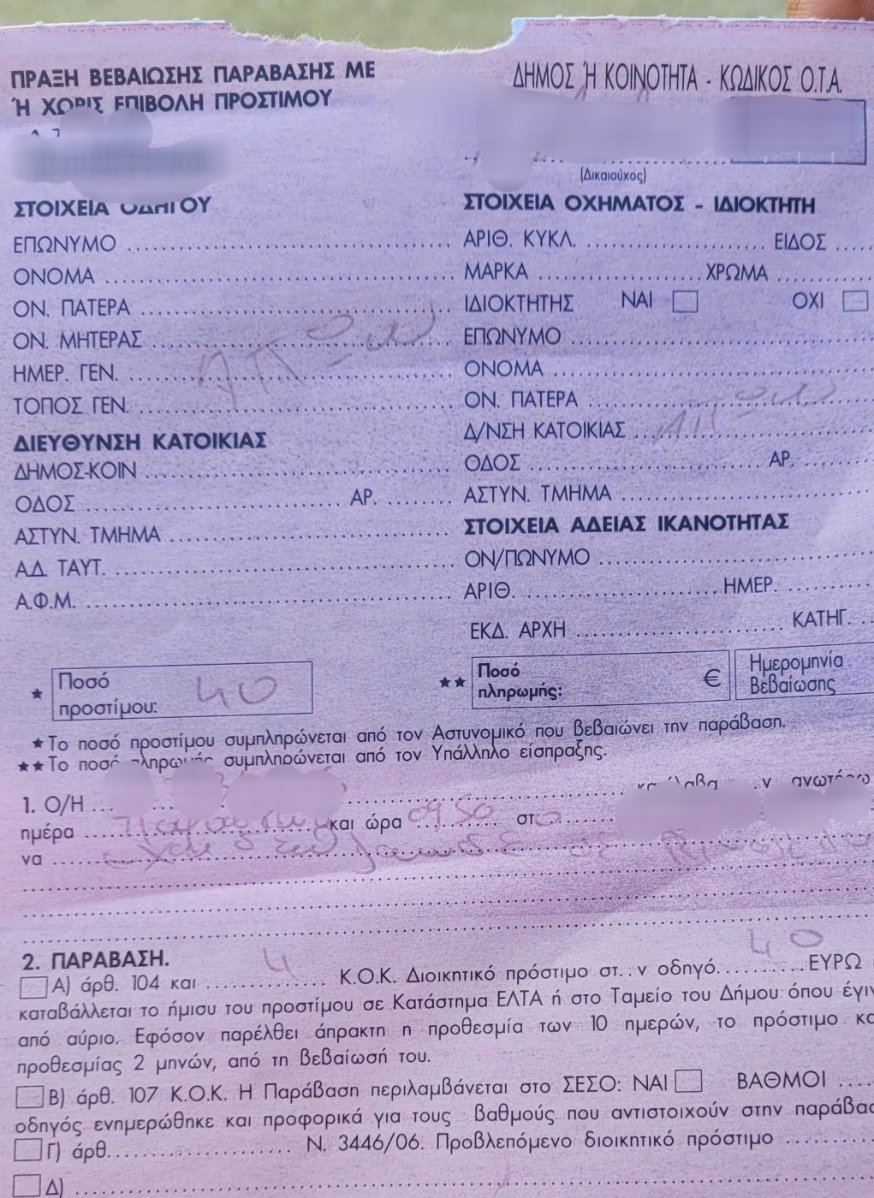 ΠΡΑΞΗ ΒΕΒΑΙΩΣΗΣ ΠΑΡΑΒΑΣΗΣ ΜΕ
Ή ΧΩΡΙΣ ΕΠΙΒΟΛΗ ΠΡΟΣΤΙΜΟΥ
ΔΗΜΟΣ Ή ΚΟΙΝΟΤΗΤΑ - ΚΩΔΙΚΟΣ Ο.Τ.Α.
(Δικαιούχος)
ΣΤΟΙΧΕΙΑ ΟΔΗΓΟΥ
ΕΠΩΝΥΜΟ
ΟΝΟΜΑ
ΟΝ. ΠΑΤΕΡΑ
ΟΝ. ΜΗΤΕΡΑΣ
ΗΜΕΡ. ΓΕΝ.
ΑΠΩΝ
ΤΟΠΟΣ ΓΕΝ.
ΔΙΕΥΘΥΝΣΗ ΚΑΤΟΙΚΙΑΣ
ΔΗΜΟΣ-ΚΟΙΝ
ΟΔΟΣ ΑΡ.
ΑΣΤΥΝ. ΤΜΗΜΑ
Α.Δ. ΤΑΥΤ.
Α.Φ.Μ.
ΣΤΟΙΧΕΙΑ ΟΧΗΜΑΤΟΣ - ΙΔΙΟΚΤΗΤΗ
ΑΡΙΘ. ΚΥΚΛ. ΕΙΔΟΣ
ΜΑΡΚΑ ΧΡΩΜΑ
ΙΔΙΟΚΤΗΤΗΣ ΝΑΙ ΟΧΙ
ΕΠΩΝΥΜΟ
ΟΝΟΜΑ
ΟΝ. ΠΑΤΕΡΑ
ΑΠΩΝ
Δ/ΝΣΗ ΚΑΤΟΙΚΙΑΣ
ΟΔΟΣ ΑΡ.
ΑΣΤΥΝ. ΤΜΗΜΑ
ΣΤΟΙΧΕΙΑ ΑΔΕΙΑΣ ΙΚΑΝΟΤΗΤΑΣ
ΟΝ/ΠΩΝΥΜΟ
ΑΡΙΘ. ΗΜΕΡ.
ΕΚΔ. ΑΡΧΗ ΚΑΤΗΓ.
★ Ποσό
προστίμου: 40
★★ Ποσό
πληρωμής: €
Ημερομηνία
Βεβαίωσης
★Το ποσό προστίμου συμπληρώνεται από τον Αστυνομικό που βεβαιώνει την παράβαση.
★★Το ποσό πληρωμής συμπληρώνεται από τον Υπάλληλο είσπραξης.
1. Ο/Η ανωτέρω
ημέρα και ώρα 0950 στο
να
2. ΠΑΡΑΒΑΣΗ.
Α) άρθ. 104 και 4 Κ.Ο.Κ. Διοικητικό πρόστιμο στ..ν οδηγό 40 ΕΥΡΩ
καταβάλλεται το ήμισυ του προστίμου σε Κατάστημα ΕΛΤΑ ή στο Ταμείο του Δήμου όπου
από αύριο. Εφόσον παρέλθει άπρακτη η προθεσμία των 10 ημερών, το πρόστιμο
προθεσμίας 2 μηνών, από τη βεβαίωσή του.
Β) άρθ. 107 Κ.Ο.Κ. Η Παράβαση περιλαμβάνεται στο ΣΕΣΟ: ΝΑΙ ΒΑΘΜΟΙ
οδηγός ενημερώθηκε και προφορικά για τους βαθμούς που αντιστοιχούν στην
Γ) άρθ. Ν. 3446/06. Προβλεπόμενο διοικητικό πρόστιμο
Δ)